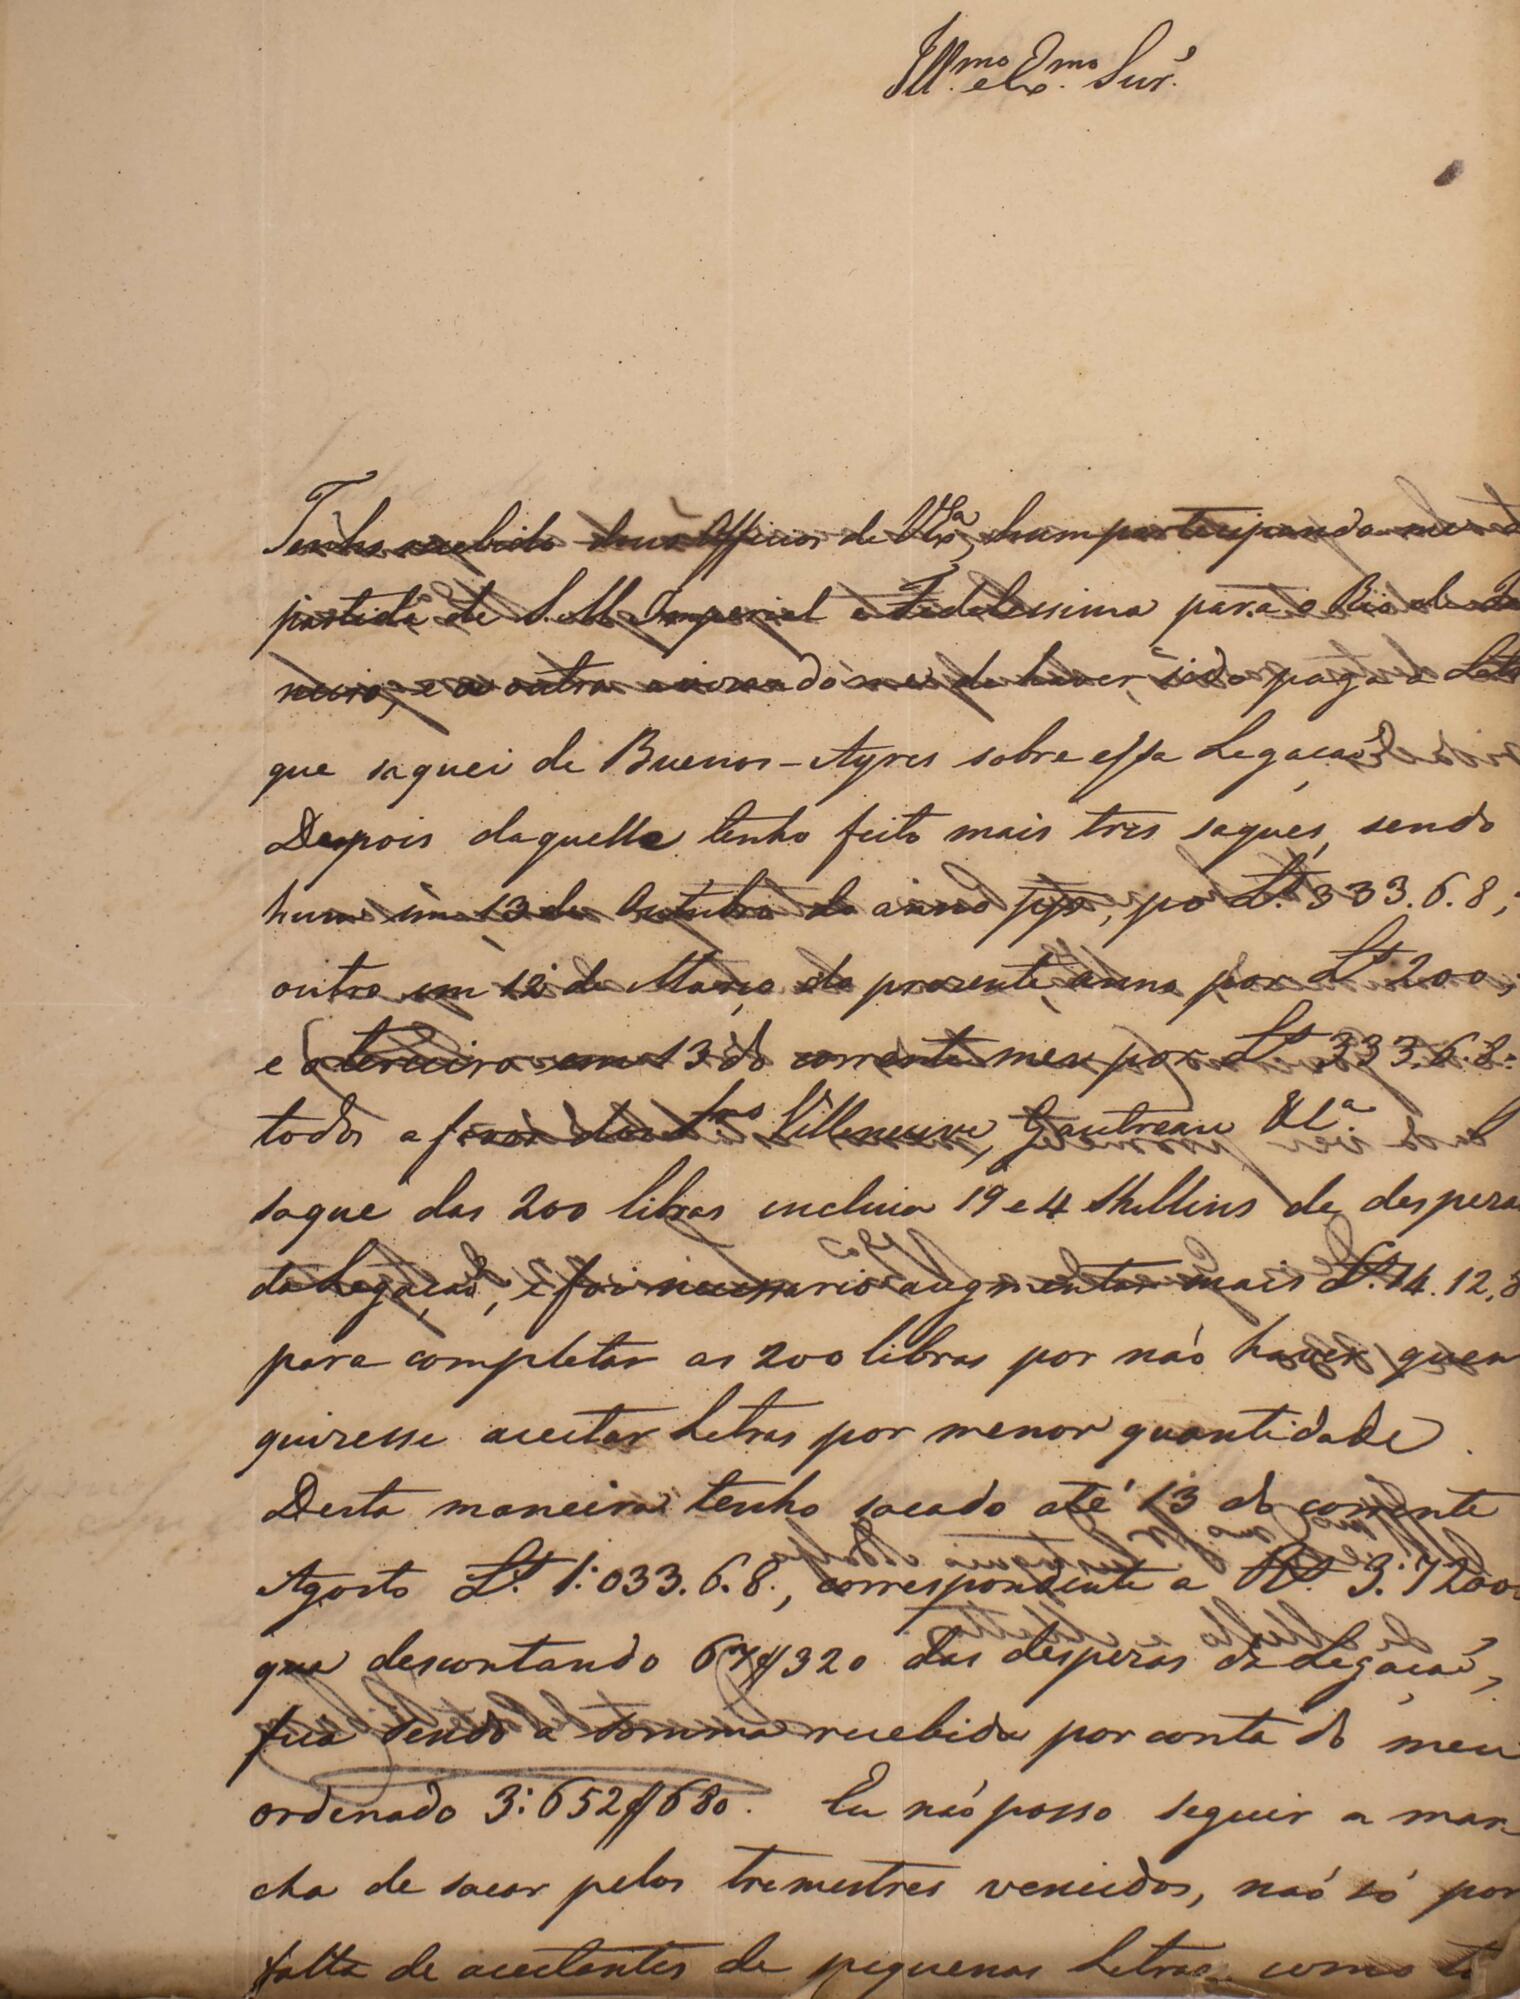 Ill.mo e Ex.mo Snr.
Tenho recebido dous Officios de V.Ex.a, hum participando-me a
partida de S. M. Imperial e Fidelessima para o Rio de Ja
neiro, e o outro avizando-me de haver sido paga a Letra
que saquei de Buenos-Ayres sobre essa Legação.
Depois daquelle tenho feito mais tres saques, sendo
hum em 13 de Outubro do anno pp., por L.s 333.6.8;
outro em 12 de Março do prezente anno por L.s 200;
e o terceiro em 13 do corrente mez por L.s 333.6.8:
todos a favor dos S.res Villeneuve, Gautreau &C.a
saque das 200 libras inclui 19 e 4 Shillins de despezas
da Legação, e foi necessario augmentar mais L.s 14.12.8
para completar as 200 libras por não haver quem
quizesse aceitar Letras por menor quantidade.
Desta maneira tenho sacado até 13 do corrente
Agosto L.s 1:033.6.8., correspondente a R.s 3:7200
que descontando 67$320 das despezas da Legação,
fica sendo a somma recebida por conta do meu
ordenado 3:652$680. Eu não posso seguir a mar-
cha de sacar pelos tremestres vencidos, não só por
falta de aceitantes de pequenas Letras, como